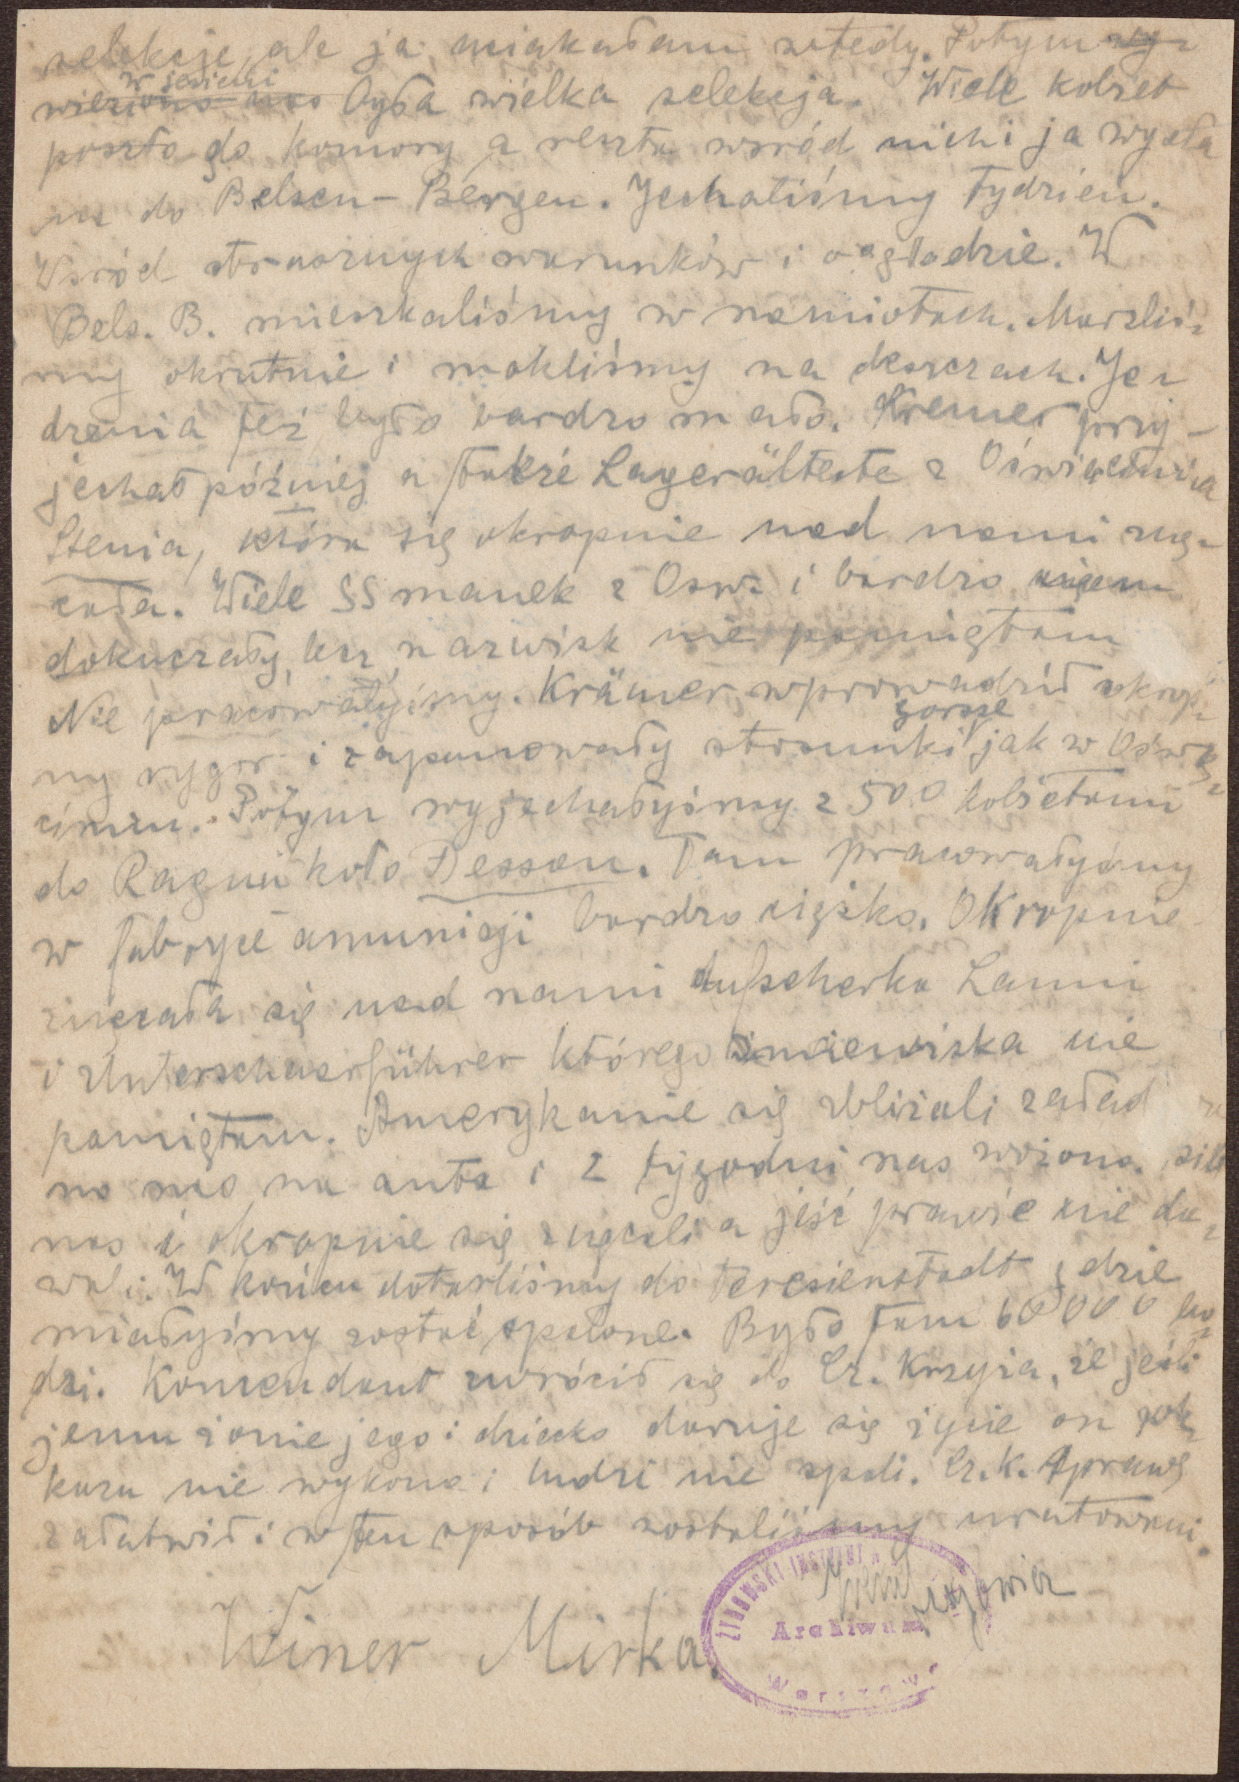 selekcje, ale ja uciekałam wtedy. Potym wy=
wieziono nas W jesieni była wielka selekcja. Wiele kobiet
poszło do komory a reszta wśród nich i ja wysła
no do Belsen-Bergen. Jechaliśmy tydzień.
Wśród strasznych warunków i o głodzie. W
Bels. B. mieszkaliśmy w namiotach. Marzliś=
my okrutnie i mokliśmy na deszczach. Je=
dzenia też było bardzo mało. Kremer przy-
jechał później a także Lagerälteste z Oświęcimia
Stenia, która się okropnie nad nami znę=
cała. Wiele SS manek z Osw. i bardzo
dokuczały, lecz nazwisk nie pamiętam
Nie pracowałyśmy. Krämer wprowadził okrop=
ny rygor i zapanowały stosunki gorsze jak w Oświę=
cimiu. Potym wyjechałyśmy z 500 kobietami
do Raguni koło Dessau. Tam pracowałyśmy
w fabryce amunicji bardzo ciężko. Okropnie
znęcała się nad nami aufseherka Lanni
i Unterschaerführer którego imiewiska nie
pamiętam. Amerykanie się zbliżali załad
no nas na auta i 2 tygodni nas wożono. bili
nas i okropnie się znęcali a jeść prawie nie da=
wali. W końcu dotarliśmy do Teresienstadt gdzie
miałyśmy zostać spalone. Było tam 60000 lu=
dzi. Komendant zwrócił się do Cz. Krzyża, że jeśli
jemu żonie jego i dziecko daruje się życie on roz=
kazu nie wykona i ludzi nie spali. Cz. K. sprawę
załatwił i w ten sposób zostaliśmy uratowani.
Winer Mirka.
ŻYDOWSKI INSTYTUT
Archiwum
Warszawa